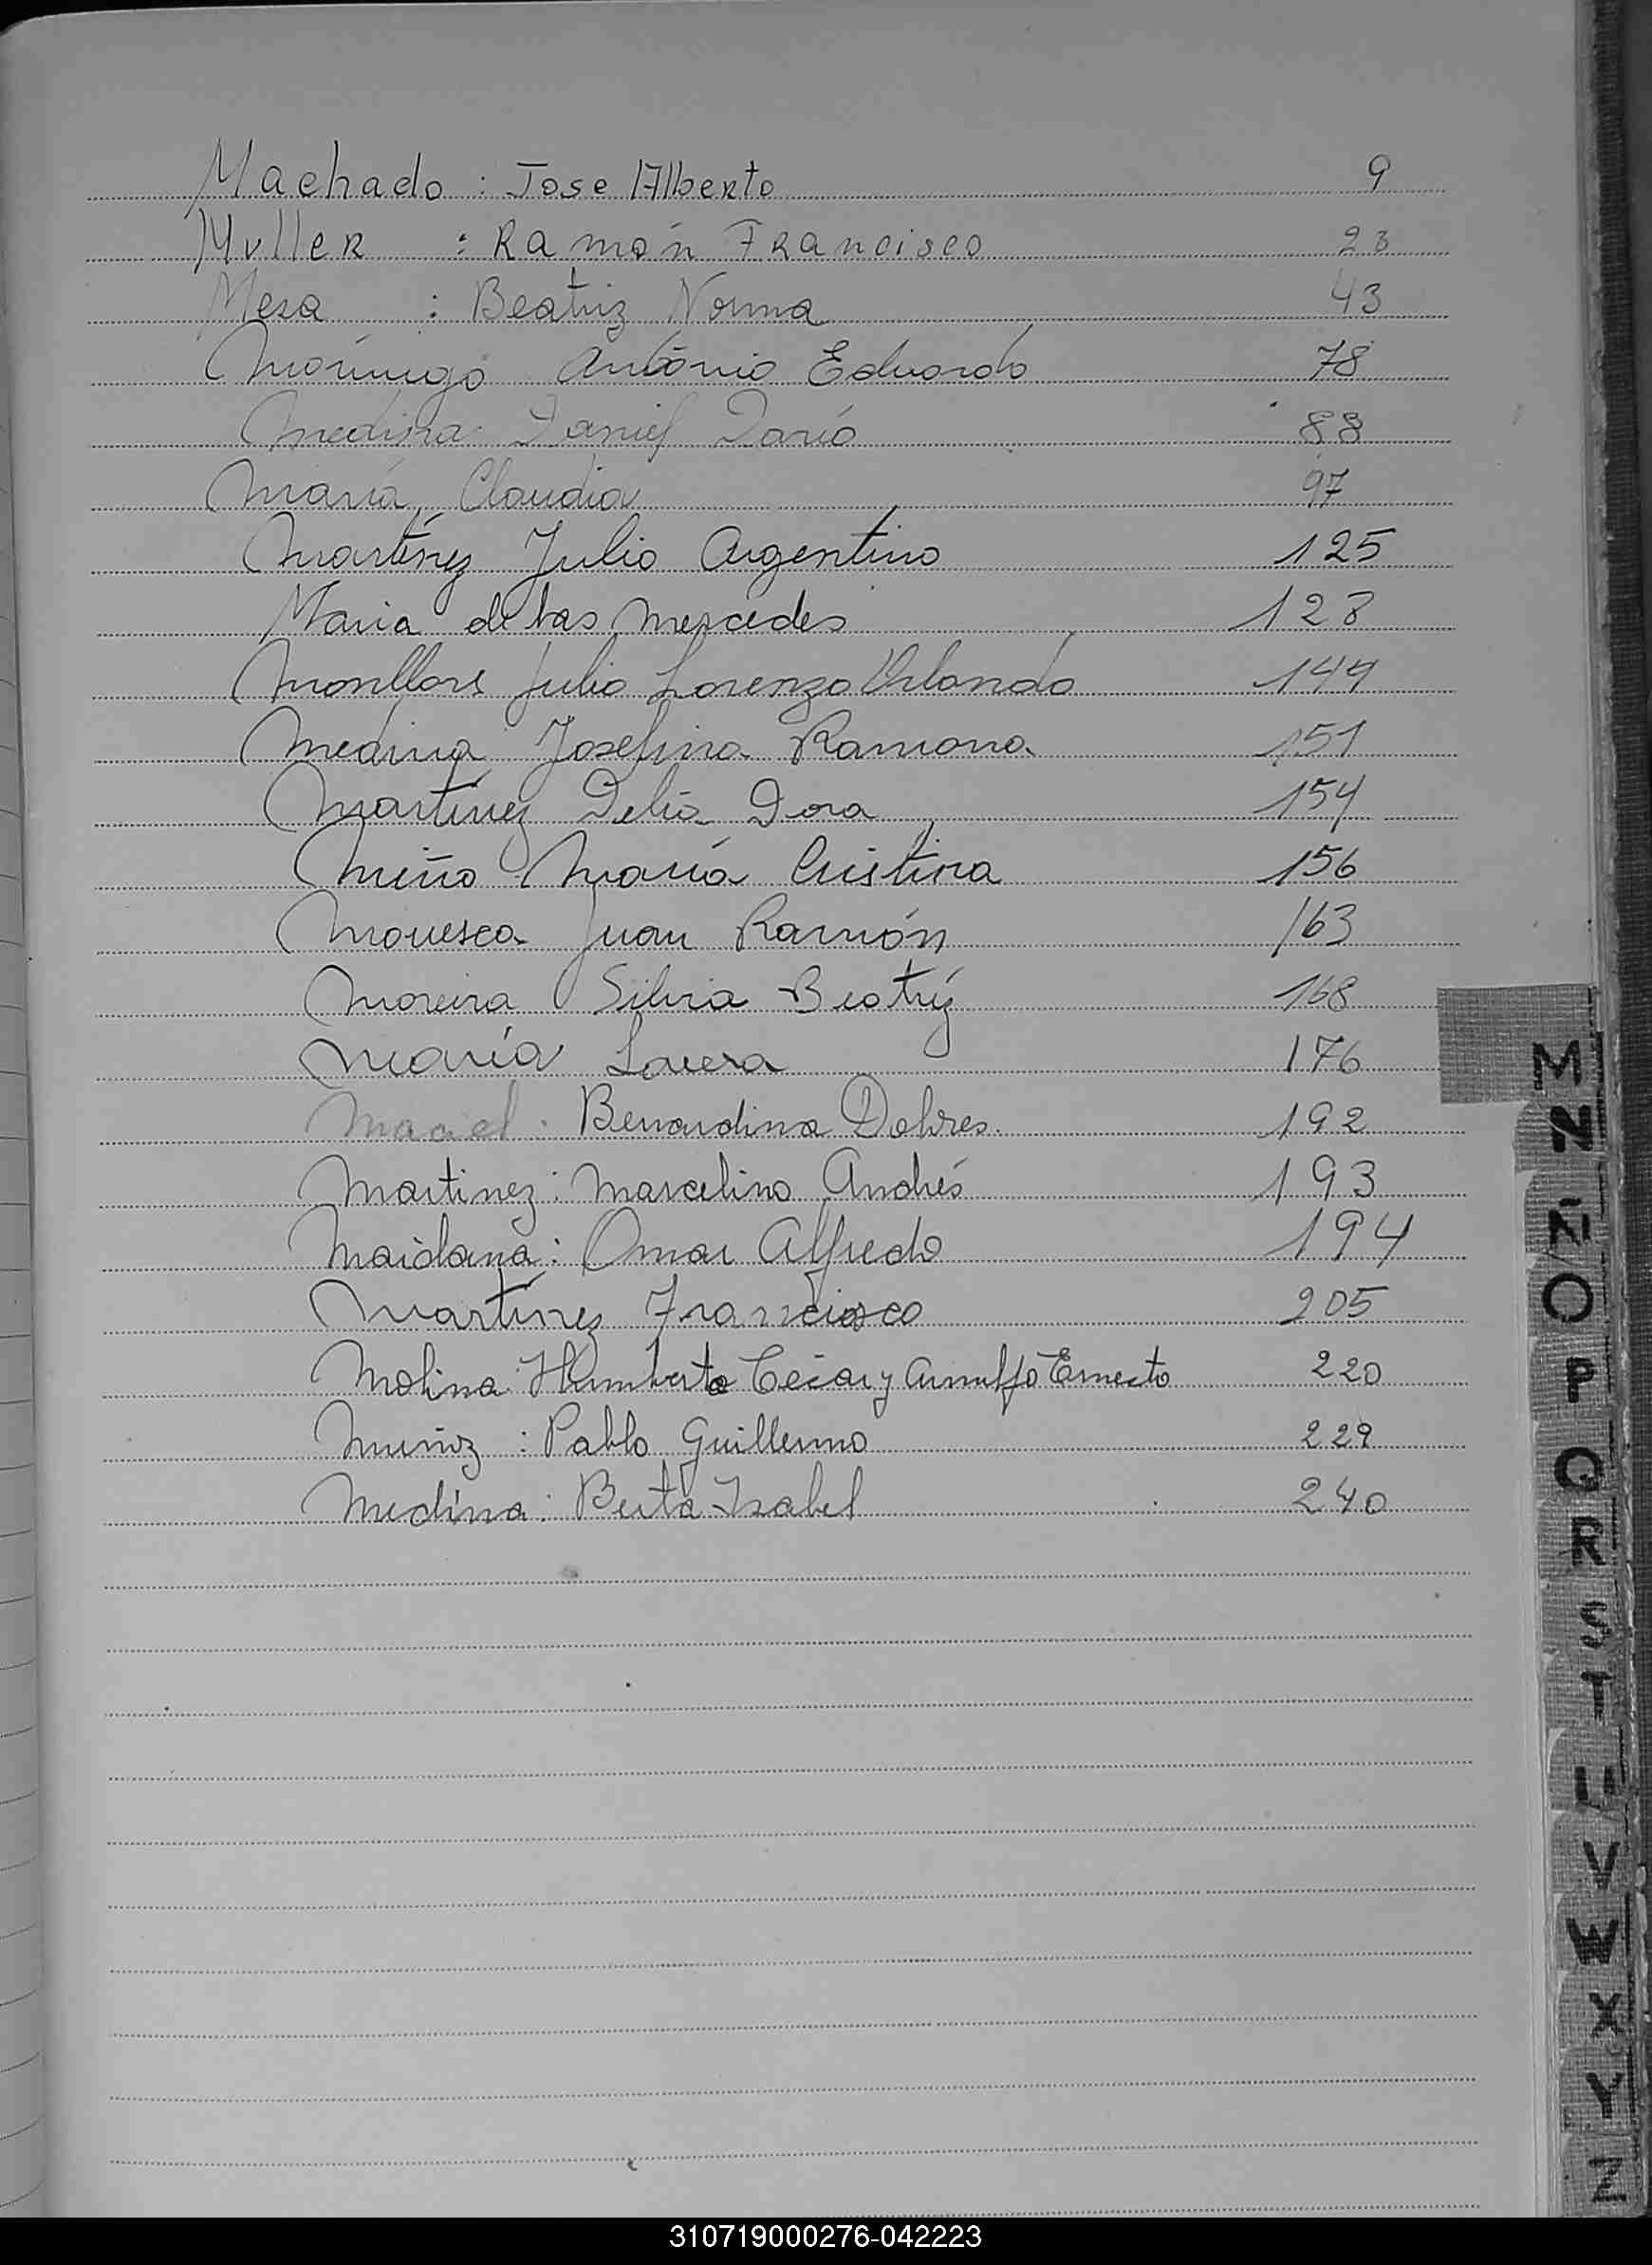 Machado : Jose Alberto 9
Muller : Ramón Francisco 23
Meza : Beatriz Norma 43
Morínigo Antonio Eduardo 78
Medina Daniel Darío 88
María, Claudia 97
Martínez Julio Argentino 125
Maria de las Mercedes 128
Monllors Julio Lorenzo Orlando 149
Medina Josefina Ramona 151
Martínez Delia Dora 154
Miño María Cristina 156
Juan Ramón 163
Moreira Silvia Beatríz 168
María Laura 176
Maciel : Bernardina Dolores. 192
Martinez : Marcelino Andrés 193
Maidana : Omar Alfredo 194
Martínez Francisco 205
Molina : Humberto César y Arnulfo Ernesto 220
Muñoz : Pablo Guillermo 229
Medina : Berta Isabel 240
M
N
Ñ
O
P
Q
R
S
T
U
V
W
X
Y
Z
310719000276-042223